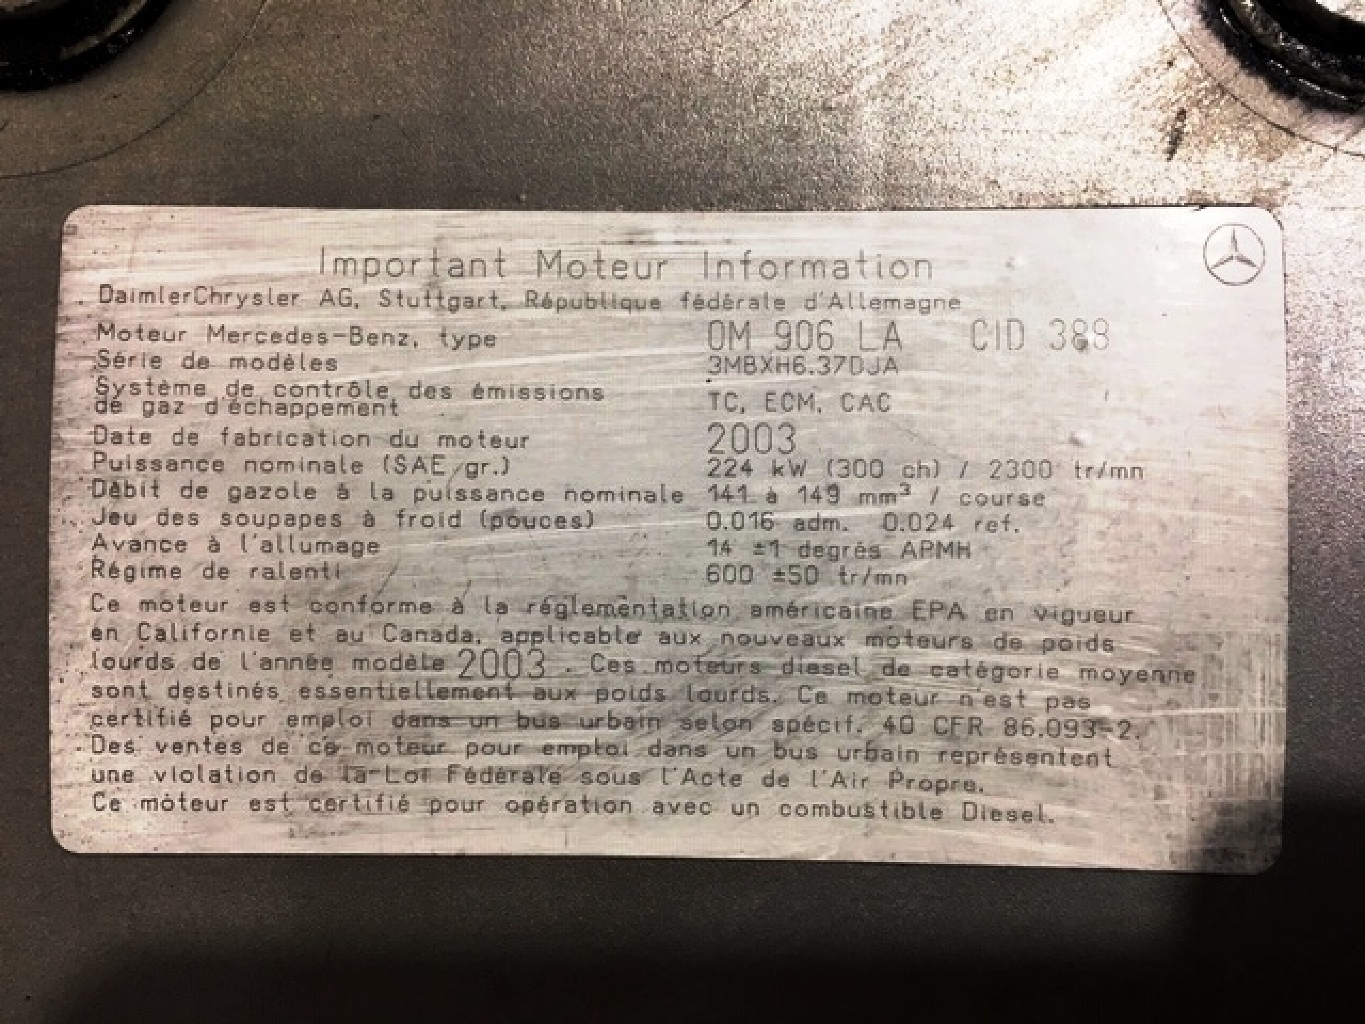 Important Moteur Information
DaimlerChrysler AG, Stuttgart, République fédérale d'Allemagne
Moteur Mercedes-Benz, type OM 906 LA CID 388
Série de modèles 3MBXH6.37DJA
Système de contrôle des émissions
de gaz d'échappement TC, ECM, CAC
Date de fabrication du moteur 2003
Puissance nominale (SAE gr.) 224 kW (300 ch) / 2300 tr/mn
Débit de gazole à la puissance nominale 141 à 149 mm³ / course
Jeu des soupapes à froid (pouces) 0.016 adm. 0.024 ref.
Avance à l'allumage 14 ±1 degrés APMH
Régime de ralenti 600 ±50 tr/mn
Ce moteur est conforme à la réglementation américaine EPA en vigueur
en Californie et au Canada, applicable aux nouveaux moteurs de poids
lourds de l'année modèle 2003. Ces moteurs diesel de catégorie moyenne
sont destinés essentiellement aux poids lourds. Ce moteur n'est pas
certifié pour emploi dans un bus urbain selon spécif. 40 CFR 86.093-2.
Des ventes de ce moteur pour emploi dans un bus urbain représentent
une violation de la Loi Fédérale sous l'Acte de l'Air Propre.
Ce moteur est certifié pour opération avec un combustible Diesel.